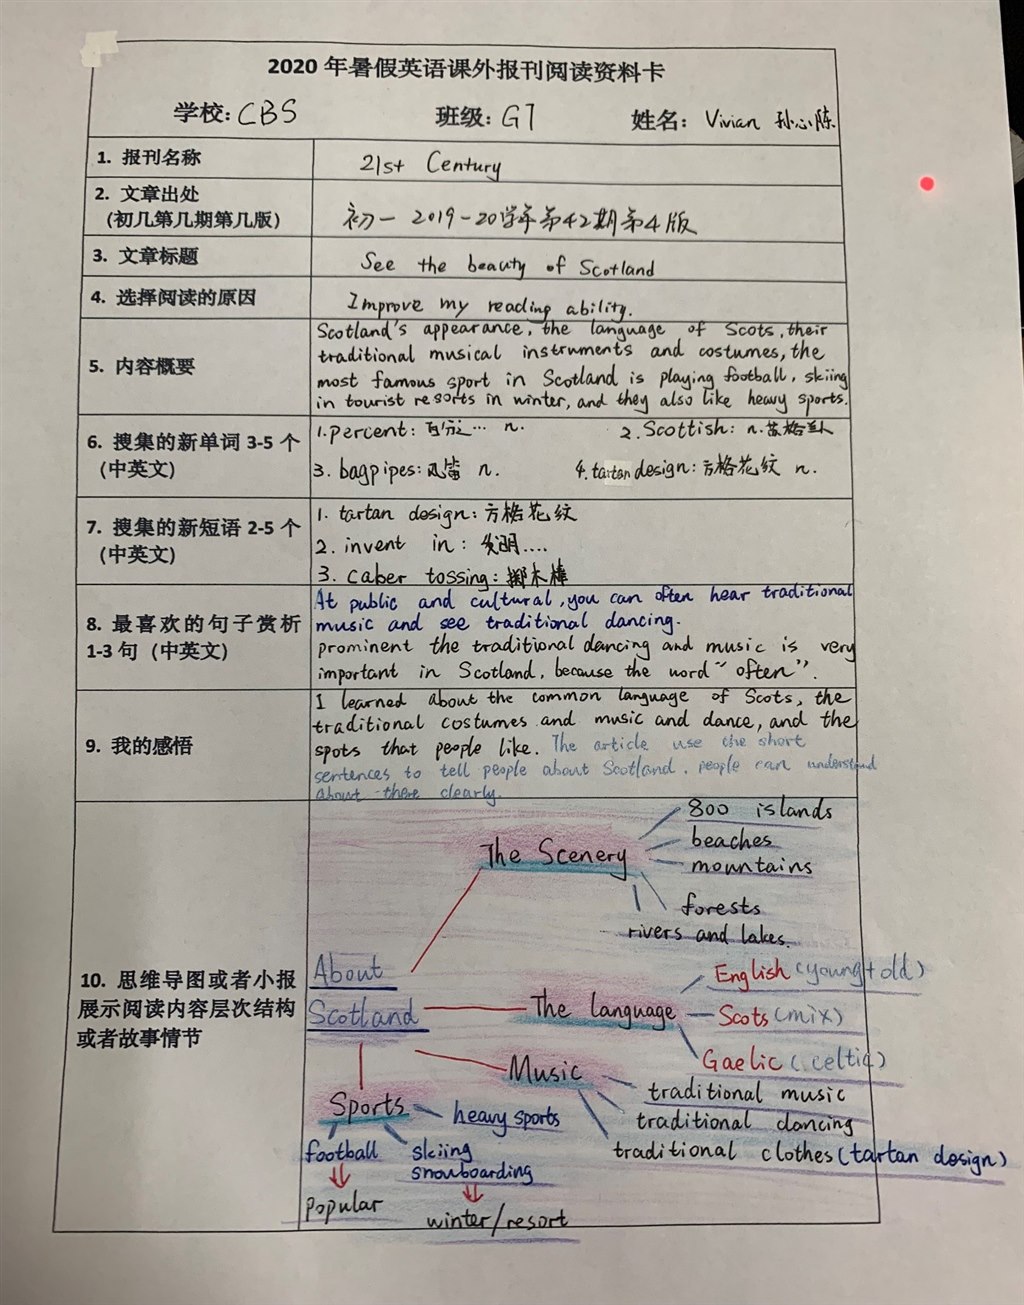 2020 年暑假英语课外报刊阅读资料卡
学校: CBS 班级: G7 姓名: Vivian 孙心陈
1. 报刊名称 21st Century
2. 文章出处
(初几第几期第几版) 初一 2019-20学年第42期第4版
3. 文章标题 See the beauty of Scotland
4. 选择阅读的原因 Improve my reading ability.
5. 内容概要
Scotland's appearance, the language of Scots, their
traditional musical instruments and costumes, the
most famous sport in Scotland is playing football, skiing
in tourist resorts in winter, and they also like heavy sports.
6. 搜集的新单词 3-5 个
(中英文)
1. percent: 百分之… n. 2. Scottish: n. 苏格兰人
3. bagpipes: 风笛 n. 4. tartan design: 方格花纹 n.
7. 搜集的新短语 2-5 个
(中英文)
1. tartan design: 方格花纹
2. invent in: 发明....
3. caber tossing: 掷木棒
8. 最喜欢的句子赏析
1-3 句 (中英文)
At public and cultural, you can often hear traditional
music and see traditional dancing.
prominent the traditional dancing and music is very
important in Scotland, because the word "often".
9. 我的感悟
I learned about the common language of Scots, the
traditional costumes and music and dance, and the
spots that people like. The article use the short
sentences to tell people about Scotland, people can understand
about there clearly.
10. 思维导图或者小报
展示阅读内容层次结构
或者故事情节
About
Scotland
The Scenery
800 islands
beaches
mountains
forests
rivers and lakes.
The language
English (young + old)
Scots (mix)
Gaelic (celtic)
Music
traditional music
traditional dancing
traditional clothes (tartan design)
Sports
heavy sports
football
skiing
snowboarding
popular
winter/resort